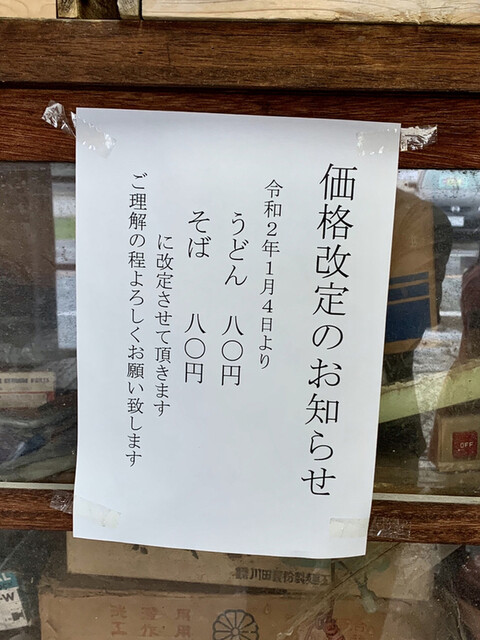 価格改定のお知らせ
令和２年１月４日より
うどん　八〇円
そば　八〇円
に改定させて頂きます
ご理解の程よろしくお願い致します
OFF